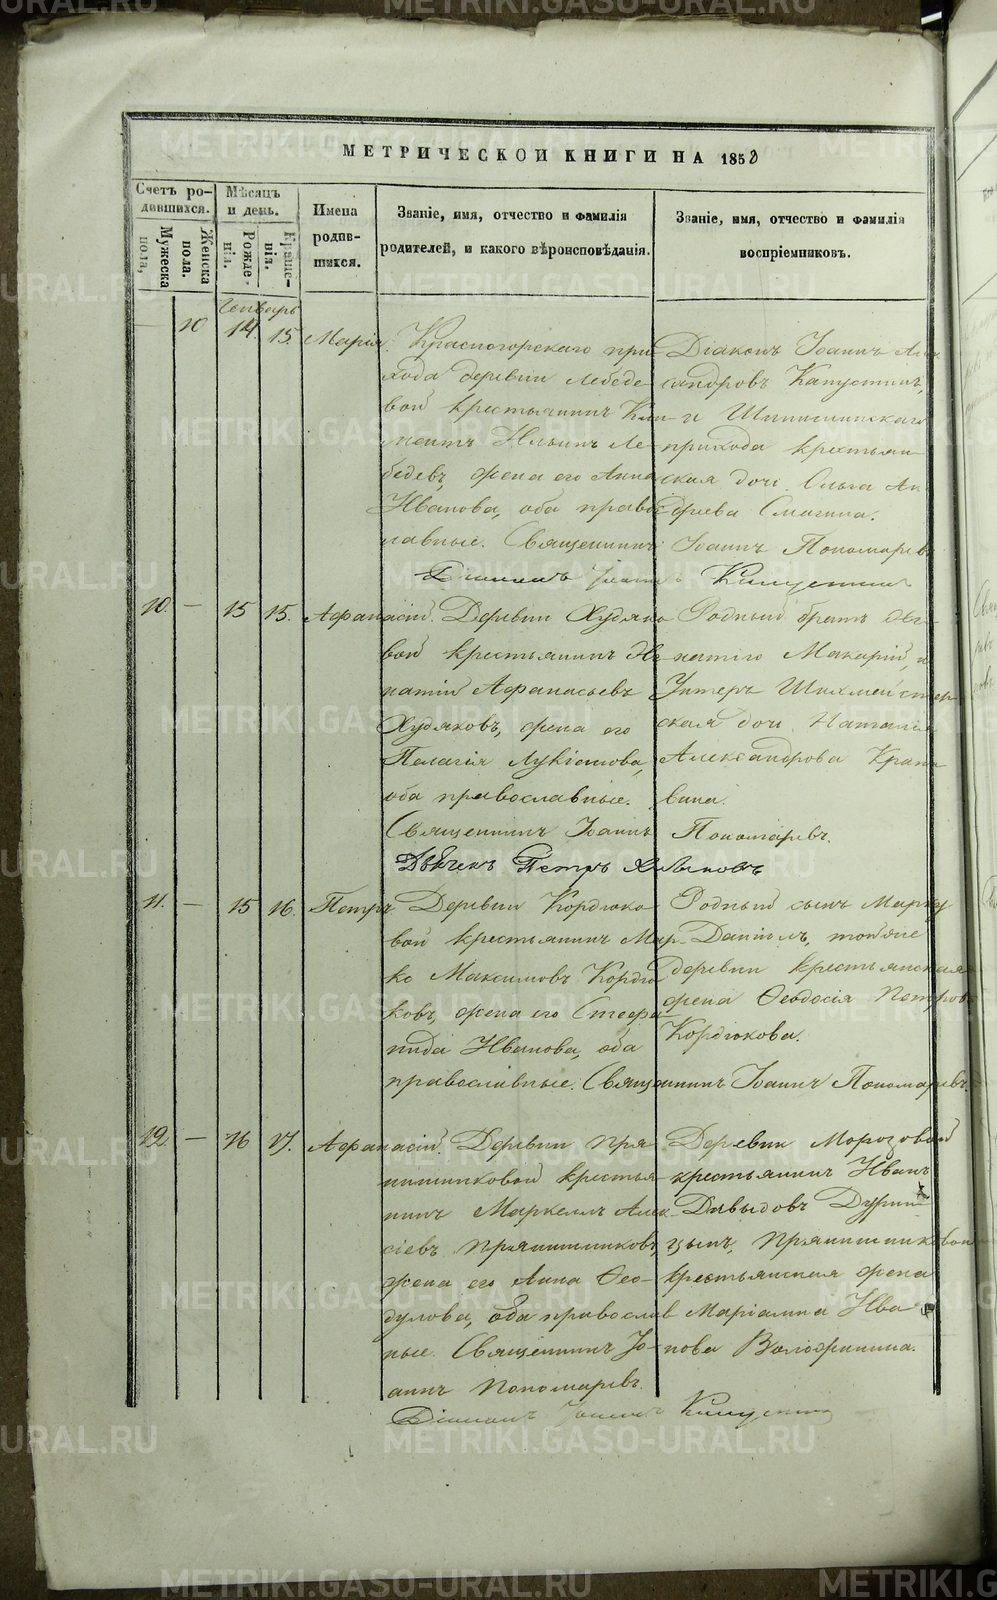 МЕТРИЧЕСКОЙ КНИГИ НА 1858
Счетъ родившихся.
Мѣсяцъ и день.
Имена родившихся.
Званіе, имя, отчество и фамилія родителей, и какого вѣроисповѣданія.
Званіе, имя, отчество и фамилія воспріемниковъ.
Мужеска пола,
Женска пола.
Рожденія.
Крещенія.
Генварь
10 14. 15. Марія. Красногорскаго при-
хода деревни Лебеде-
вой крестьянинъ Кли-
ментъ Ильинъ Ле-
бедевъ, жена его Анна
Иванова, оба правос-
лавные. Священникъ Іоаннъ Пономаревъ
Діаконъ Іоаннъ Але-
сандровъ Капустинъ,
и
прихода крестьян-
ская дочь Ольга Ан-
дреева Смагина.
Діаконъ Іоаннъ Капустинъ
10. — 15 15. Афанасій. Деревни Худяко-
вой крестьянинъ Иг-
натій Афанасьевъ
Худяковъ, жена его
Пелагія Лукіанова,
оба православные.
Родный братъ Иг-
натія Макарій, и
Унтеръ Шихмейстер-
ская дочь Наталія
Александрова Крапи-
вина.
Священникъ Іоаннъ Пономаревъ.
Дьячекъ Петръ
11. — 15 16. Петръ Деревни Кордюко-
вой крестьянинъ Мар-
ко Максимовъ Кордю-
ковъ, жена его Стефа-
нида Иванова, оба
православные. Священникъ Іоаннъ Пономаревъ.
Родный сынъ Марка
Даніилъ, тойже
деревни крестьянская
жена Ѳеодосія Петрова
Кордюкова.
12. — 16 17. Афанасій. Деревни Пря-
нишниковой крестья-
нинъ Маркеллъ Алек-
сіевъ Прянишниковъ,
жена его Анна Ѳео-
дулова, оба православ-
ные. Священникъ Іо-
аннъ Пономаревъ.
Деревни Морозовой
крестьянинъ Иванъ
Давыдовъ
цынъ, Прянишниковой
крестьянская жена
Маріамна Ива-
нова
Діаконъ Іоаннъ Капустинъ
METRIKI.GASO-URAL.RU